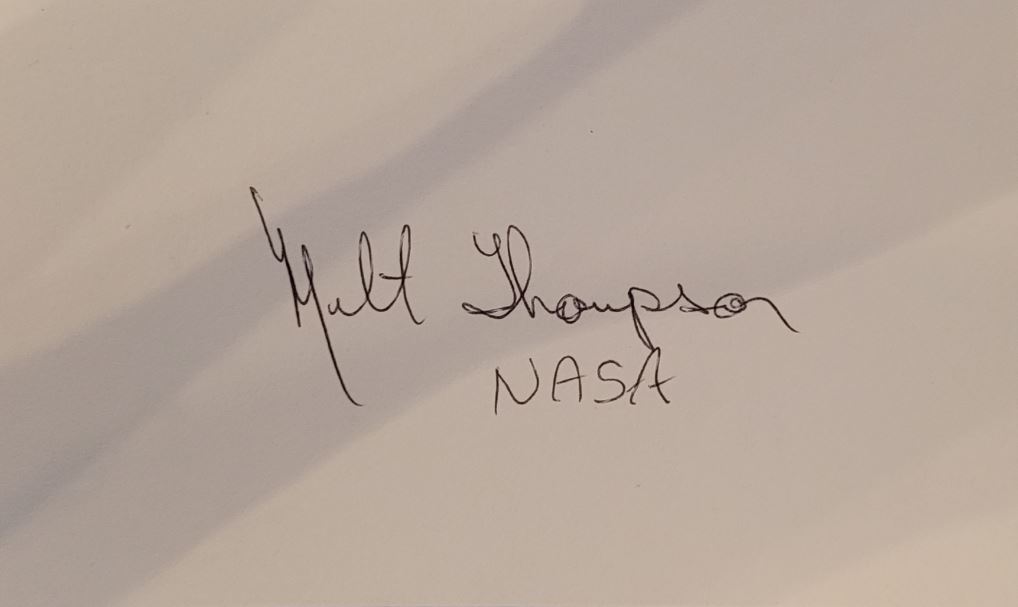 Milt Thompson
NASA